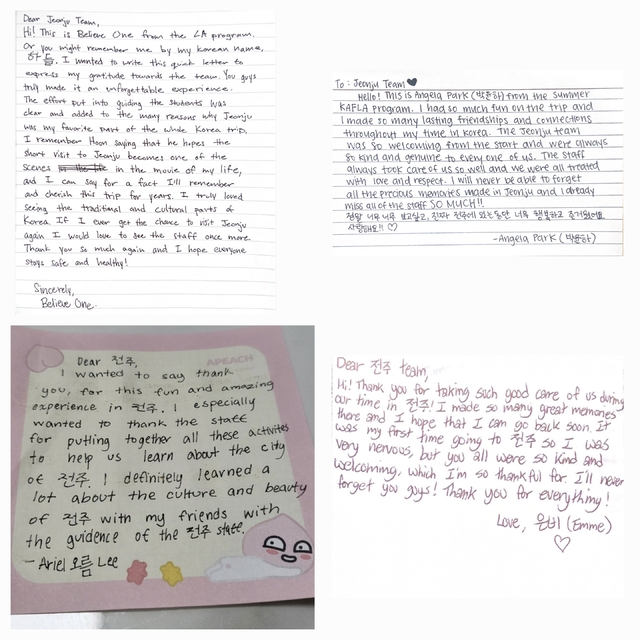 Dear Jeonju Team,
Hi! This is Believe One from the LA program.
Or you might remember me by my korean name,
하늘. I wanted to write this quick letter to
express my gratitude towards the team. You guys
truly made it an unforgettable experience.
The effort put into guiding the students was
clear and added to the many reasons why Jeonju
was my favorite part of the whole Korea trip.
I remember Hoon saying that he hopes the
short visit to Jeonju becomes one of the
scenes in the movie of my life,
and I can say for a fact I'll remember
and cherish this trip for years. I truly loved
seeing the traditional and cultural parts of
Korea. If I ever get the chance to visit Jeonju
again I would love to see the staff once more.
Thank you so much again and I hope everyone
stays safe and healthy!
Sincerely,
Believe One
To: Jeonju Team
Hello! THIS is Angela Park (박윤하) from the summer
KAFLA program. I had so much fun on the trip and
I made so many lasting friendships and connections
throughout my time in Korea. The Jeonju team
was so welcoming from the start and were always
so kind and genuine to every one of us. The staff
always took care of us so well and we were all treated
with love and respect. I will never be able to forget
all the precious memories made in Jeonju and I already
miss all of the staff SO MUCH!!
정말 너무너무 보고싶고, 진짜 전주에 있는동안 너무 행복하고 즐거웠어요.
사랑해요!! ♡
-Angela Park (박윤하)
APEACH
Dear 전주,
I wanted to say thank
you, for this fun and amazing
experience in 전주. I especially
wanted to thank the staff
for putting together all these activites
to help us learn about the city
of 전주. I definitely learned a
lot about the culture and beauty
of 전주 with my friends with
the guidence of the 전주 staff.
- Ariel 오름 Lee
Dear 전주 team,
Hi! Thank you for taking such good care of us during
our time in 전주! I made so many great memories
there and I hope that I can go back soon. It
was my first time going to 전주 so I was
very nervous, but you all were so kind and
welcomming, which I'm so thankful for. I'll never
forget you guys! Thank you for everything!
Love, 은비 (Emme)
♡